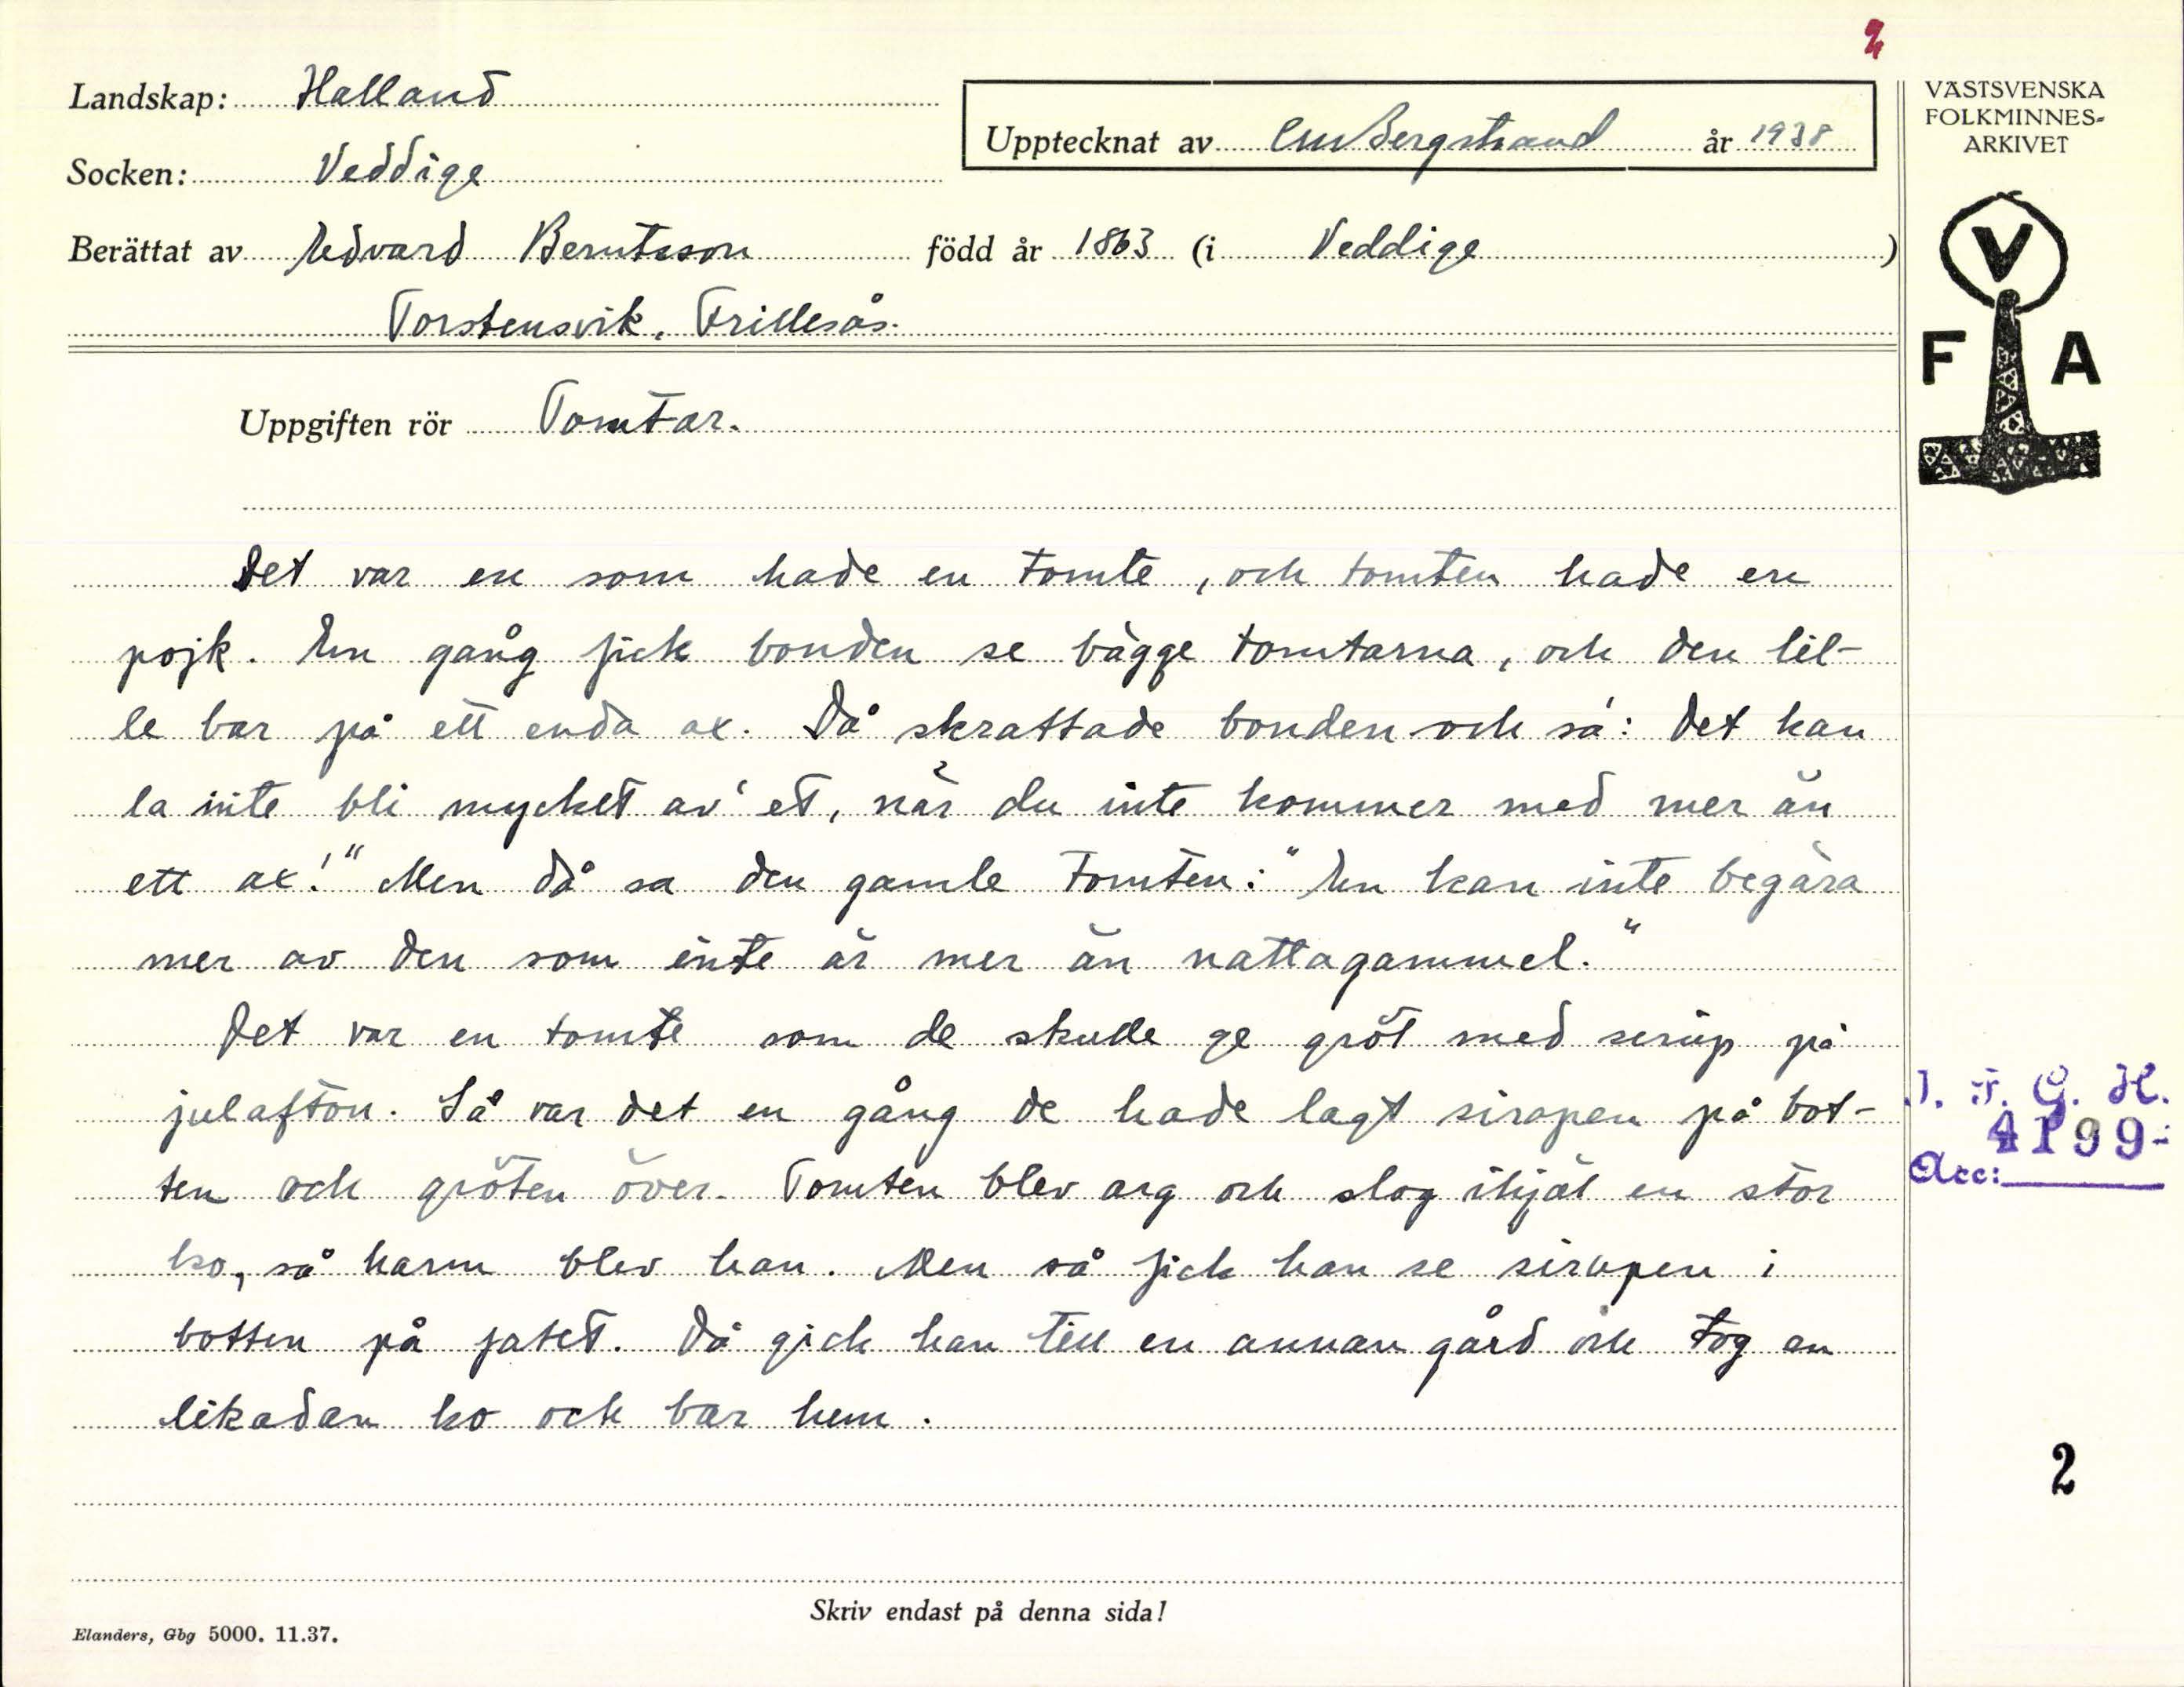 2
Landskap: Halland
Upptecknat av CMBergstrand år 1938
Socken: Veddige
Berättat av Edvard Berntsson född år 1863 (i Veddige)
Torstensvik, Frillesås.
Uppgiften rör Tomtar.
VÄSTSVENSKA
FOLKMINNES-
ARKIVET
V
F A
Det var en som hade en tomte, och tomten hade en
pojk. En gång fick bonden se bägge tomtarna, och den lil-
le bar på ett enda ax. Då skrattade bonden och sa: Det kan
la inte bli mycket av' et, när du inte kommer med mer än
ett ax!" Men då sa den gamle tomten: "En kan inte begära
mer av den som inte är mer än nattagammel."
Det var en tomte som de skulle ge gröt med sirup på
julafton. Så var det en gång de hade lagt sirapen på bot-
ten och gröten över. Tomten blev arg och slog ihjäl en stor
ko, så harm blev han. Men så fick han se sirapen i
botten på fatet. Då gick han till en annan gård och tog en
likadan ko och bar hem.
I. F. G. H.
4199
Acc:
2
Skriv endast på denna sida!
Elanders, Gbg 5000. 11.37.